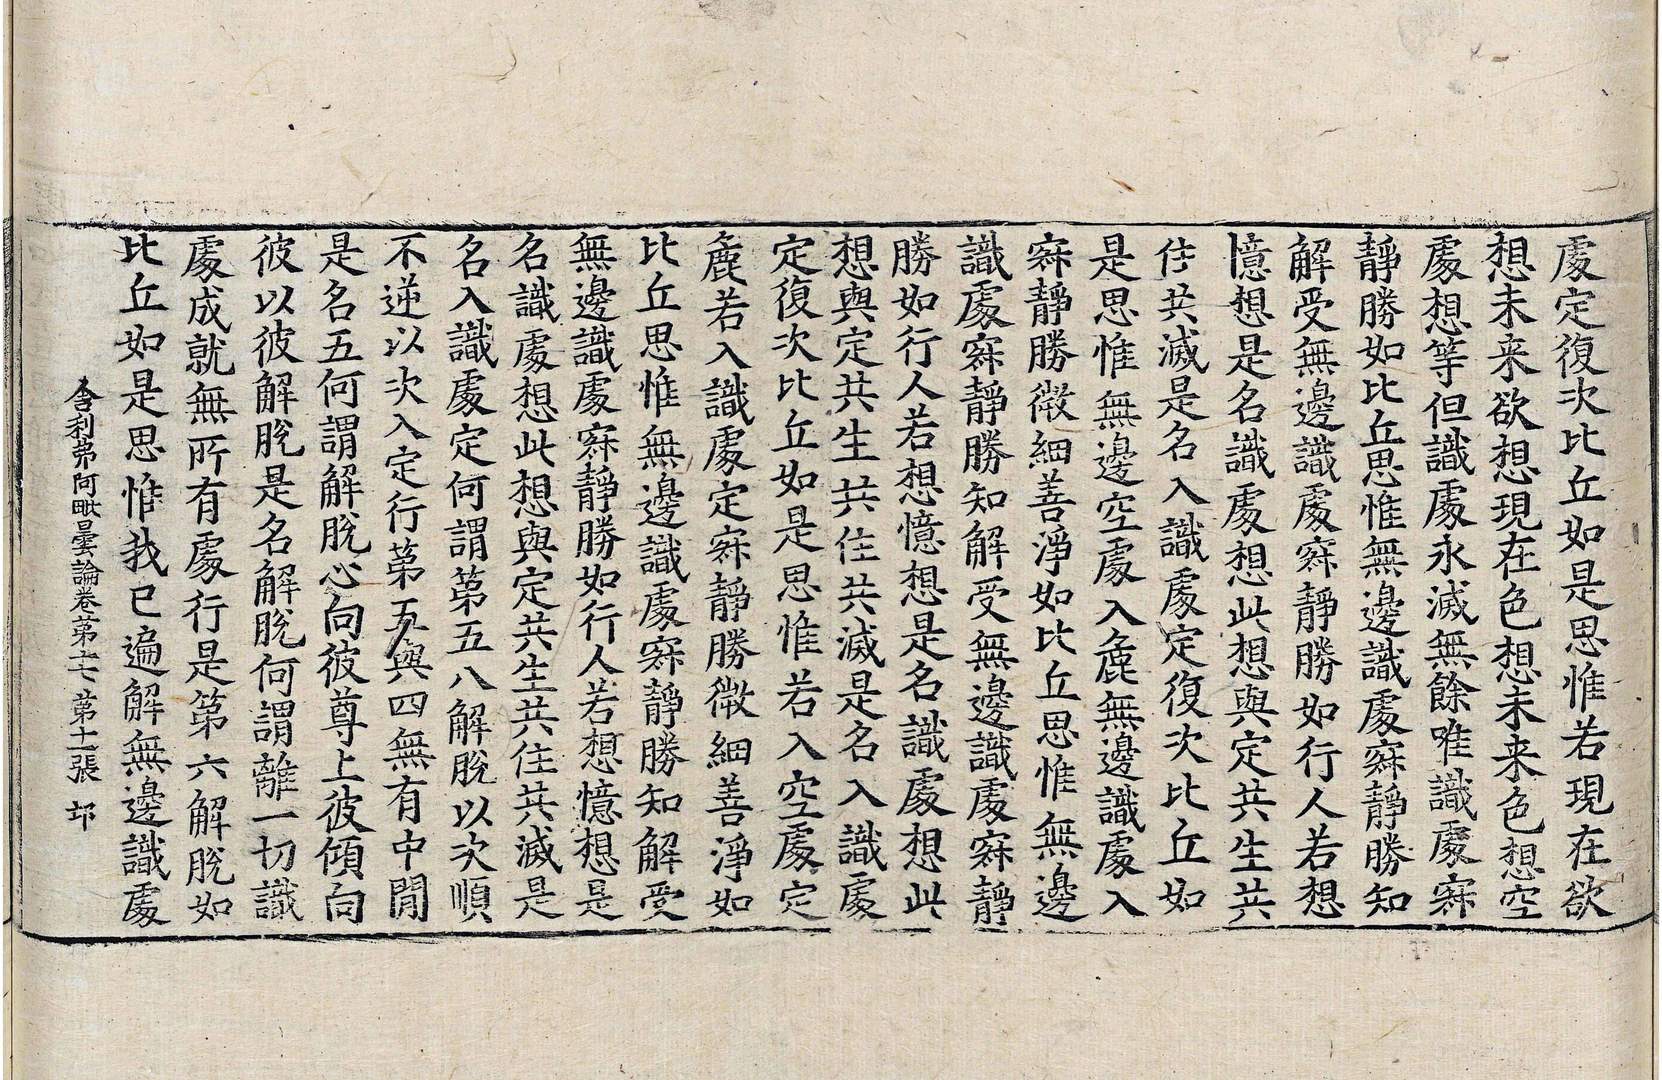 處定復次比丘如是思惟若現在欲
想未来欲想現在色想未来色想空
處想等但識處永滅無餘唯識處寂
靜勝如比丘思惟無邊識處寂靜勝知
解受無邊識處寂靜勝如行人若想
憶想是名識處想此想與定共生共
住共滅是名入識處定復次比丘如
是思惟無邊空處入麁無邊識處入
寂靜勝微細善淨如比丘思惟無邊
識處寂靜勝知解受無邊識處寂靜
勝如行人若想憶想是名識處想此
想與定共生共住共滅是名入識處
定復次比丘如是思惟若入空處定
麁若入識處定寂靜勝微細善淨如
比丘思惟無邊識處寂靜勝知解受
無邊識處寂靜勝如行人若想憶想是
名識處想此想與定共生共住共滅是
名入識處定何謂第五八解脫以次順
不逆以次入定行第五與四無有中閒
是名五何謂解脫心向彼尊上彼傾向
彼以彼解脫是名解脫何謂離一切識
處成就無所有處行是第六解脫如
比丘如是思惟我已遍解無邊識處
舍利弗阿毗曇論卷第十七 第十一張 邙